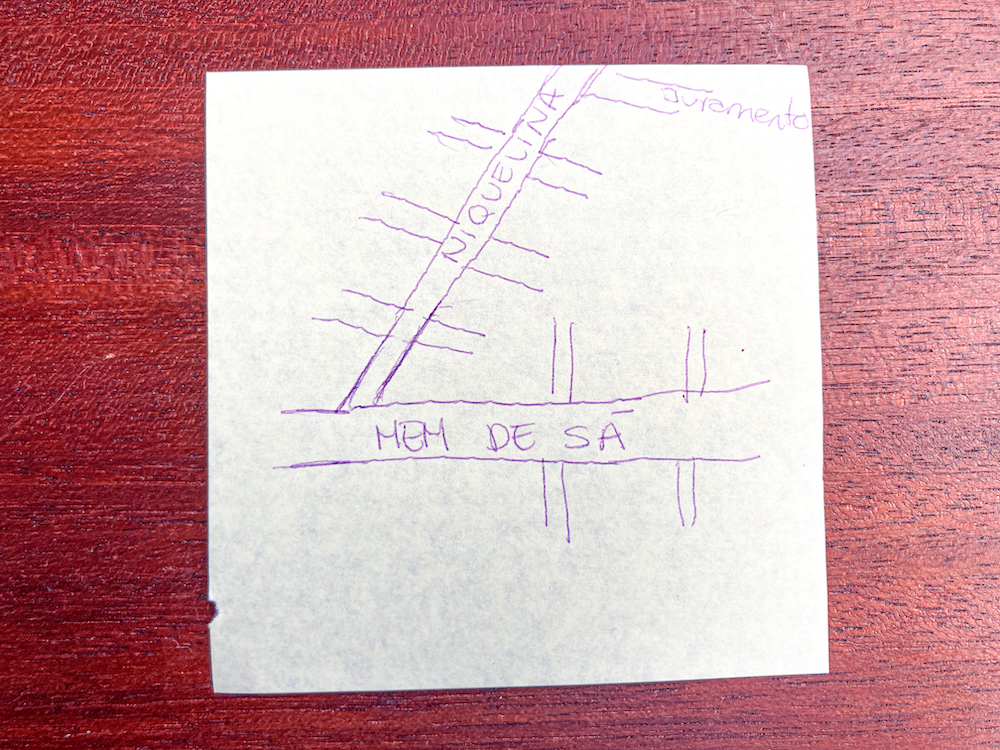 Juramento
NIQUELINA
MEM DE SÁ